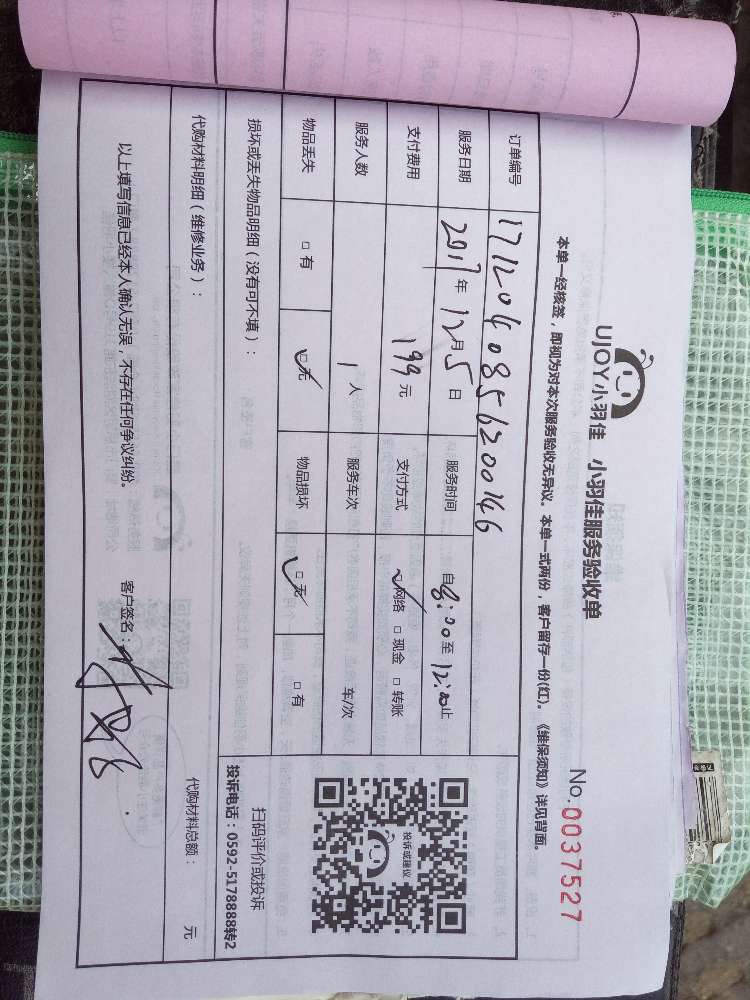 UJOY小羽佳 小羽佳服务验收单
No.0037527
本单一经核签,即视为对本次服务验收无异议。本单一式两份,客户留存一份(红)。《维保须知》详见背面。
订单编号 1712040856200146
服务日期 2017年12月5日 服务时间 自8:00至12:00止
支付费用 199元 支付方式 网络 现金 转账
服务人数 1人 服务车次 车/次
物品丢失 有 无 物品损坏 无 有
投诉或建议
扫码评价或投诉
投诉电话:0592-5178888转2
损坏或丢失物品明细(没有可不填):
代购材料明细(维修业务): 代购材料总额: 元
以上填写信息已经本人确认无误,不存在任何争议纠纷。 客户签名: